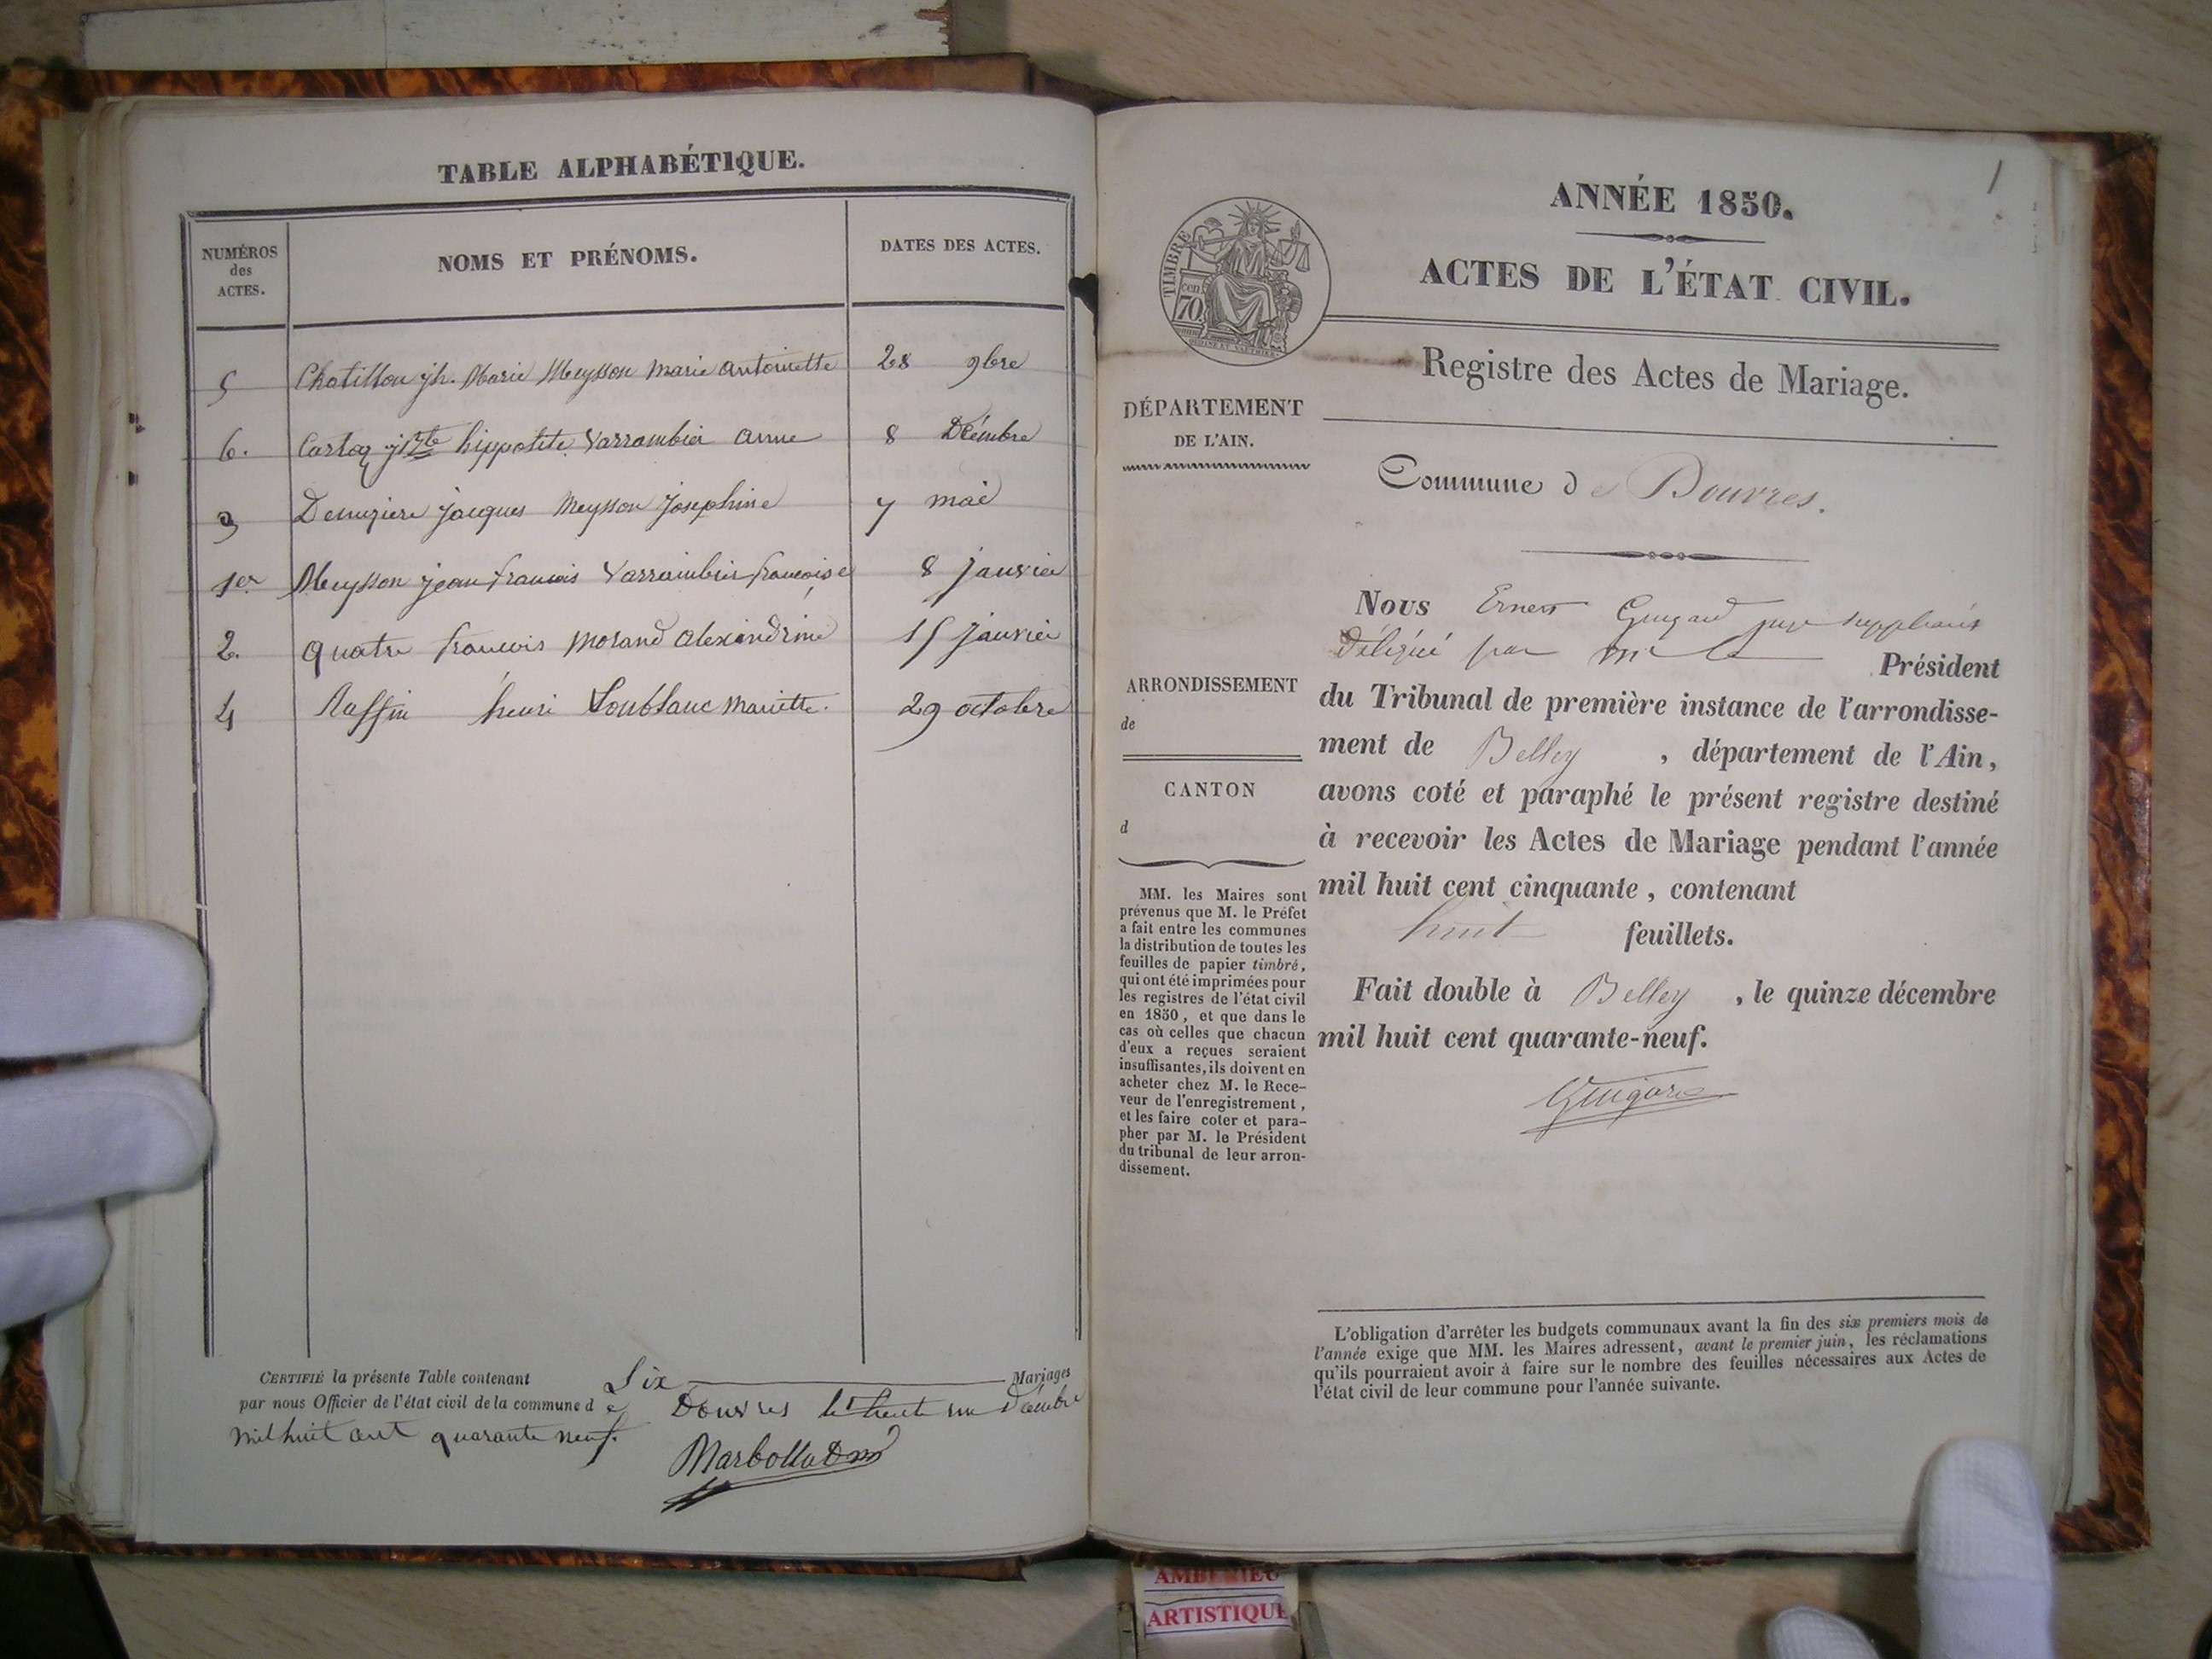 TABLE ALPHABÉTIQUE.
NUMÉROS
des
ACTES.
NOMS ET PRÉNOMS.
DATES DES ACTES.
5 Chatillon jh. Marie Meysson Marie antoinette 28 9bre
6. hippolite Varrambier anne 8 Décembre
3 jacques Meysson Josephine 7 mai
1er Meysson jean francois Varrambier francoise 8 janvier
2. quatre francois Morand alexandrine 15 Janvier
4 Ruffin henri Loublanc Mariette. 29 octobre
CERTIFIÉ la présente Table contenant Six Mariages
par nous Officier de l'état civil de la commune de Douvres le trente un Décembre
mil huit cent quarante neuf.
1
ANNÉE 1850.
ACTES DE L'ÉTAT CIVIL.
TIMBRE
70
cen
Registre des Actes de Mariage.
DÉPARTEMENT
DE L'AIN.
Commune de Douvres.
Nous Ernest Guigard juge suppléant
délégué par mr le Président
du Tribunal de première instance de l'arrondisse-
ment de Belley, département de l'Ain,
avons coté et paraphé le présent registre destiné
à recevoir les Actes de Mariage pendant l'année
mil huit cent cinquante, contenant
huit feuillets.
Fait double à Belley, le quinze décembre
mil huit cent quarante-neuf.
Guigard
ARRONDISSEMENT
de
CANTON
d
MM. les Maires sont
prévenus que M. le Préfet
a fait entre les communes
la distribution de toutes les
feuilles de papier timbré,
qui ont été imprimées pour
les registres de l'état civil
en 1850, et que dans le
cas où celles que chacun
d'eux a reçues seraient
insuffisantes, ils doivent en
acheter chez M. le Rece-
veur de l'enregistrement,
et les faire coter et para-
pher par M. le Président
du tribunal de leur arron-
dissement.
L'obligation d'arrêter les budgets communaux avant la fin des six premiers mois de
l'année exige que MM. les Maires adressent, avant le premier juin, les réclamations
qu'ils pourraient avoir à faire sur le nombre des feuilles nécessaires aux Actes de
l'état civil de leur commune pour l'année suivante.
AMBERIEU
ARTISTIQUE